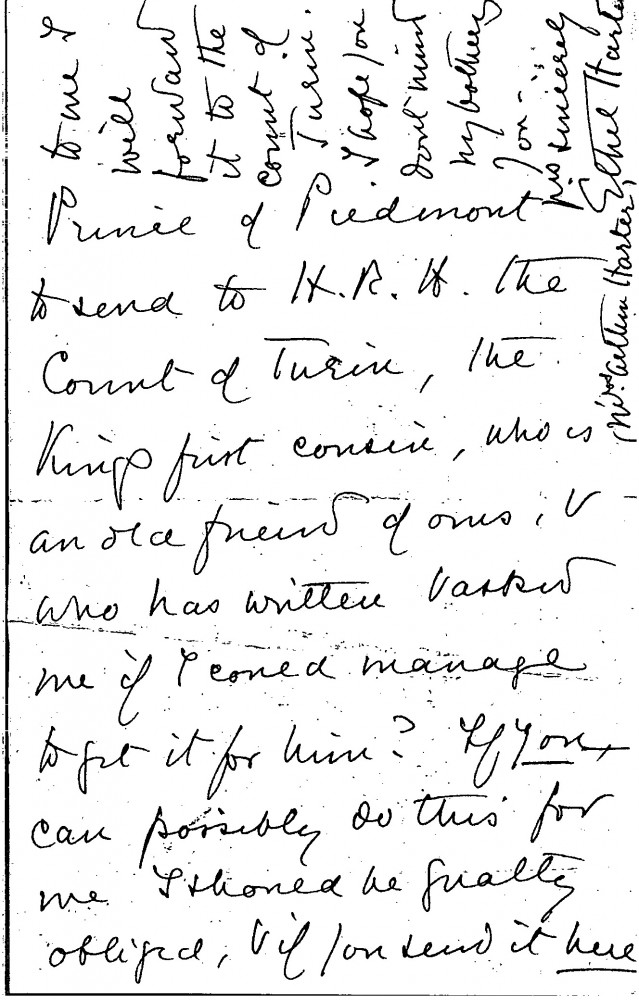 Prince of Piedmont
to send to H.R.H. the
Count of Turin, the
Kings first cousin, who is
an old friend of ours, &
who has written & asked
me if I could manage
to get it for him? If you
can possibly do this for
me I should be greatly
obliged, & if you send it here
to me I
will
forward
it to the
Count of
Turin.
I hope you
don't mind
my bothering
you -
yrs sincerely
Ethel Harter
Mrs Arthur Harter